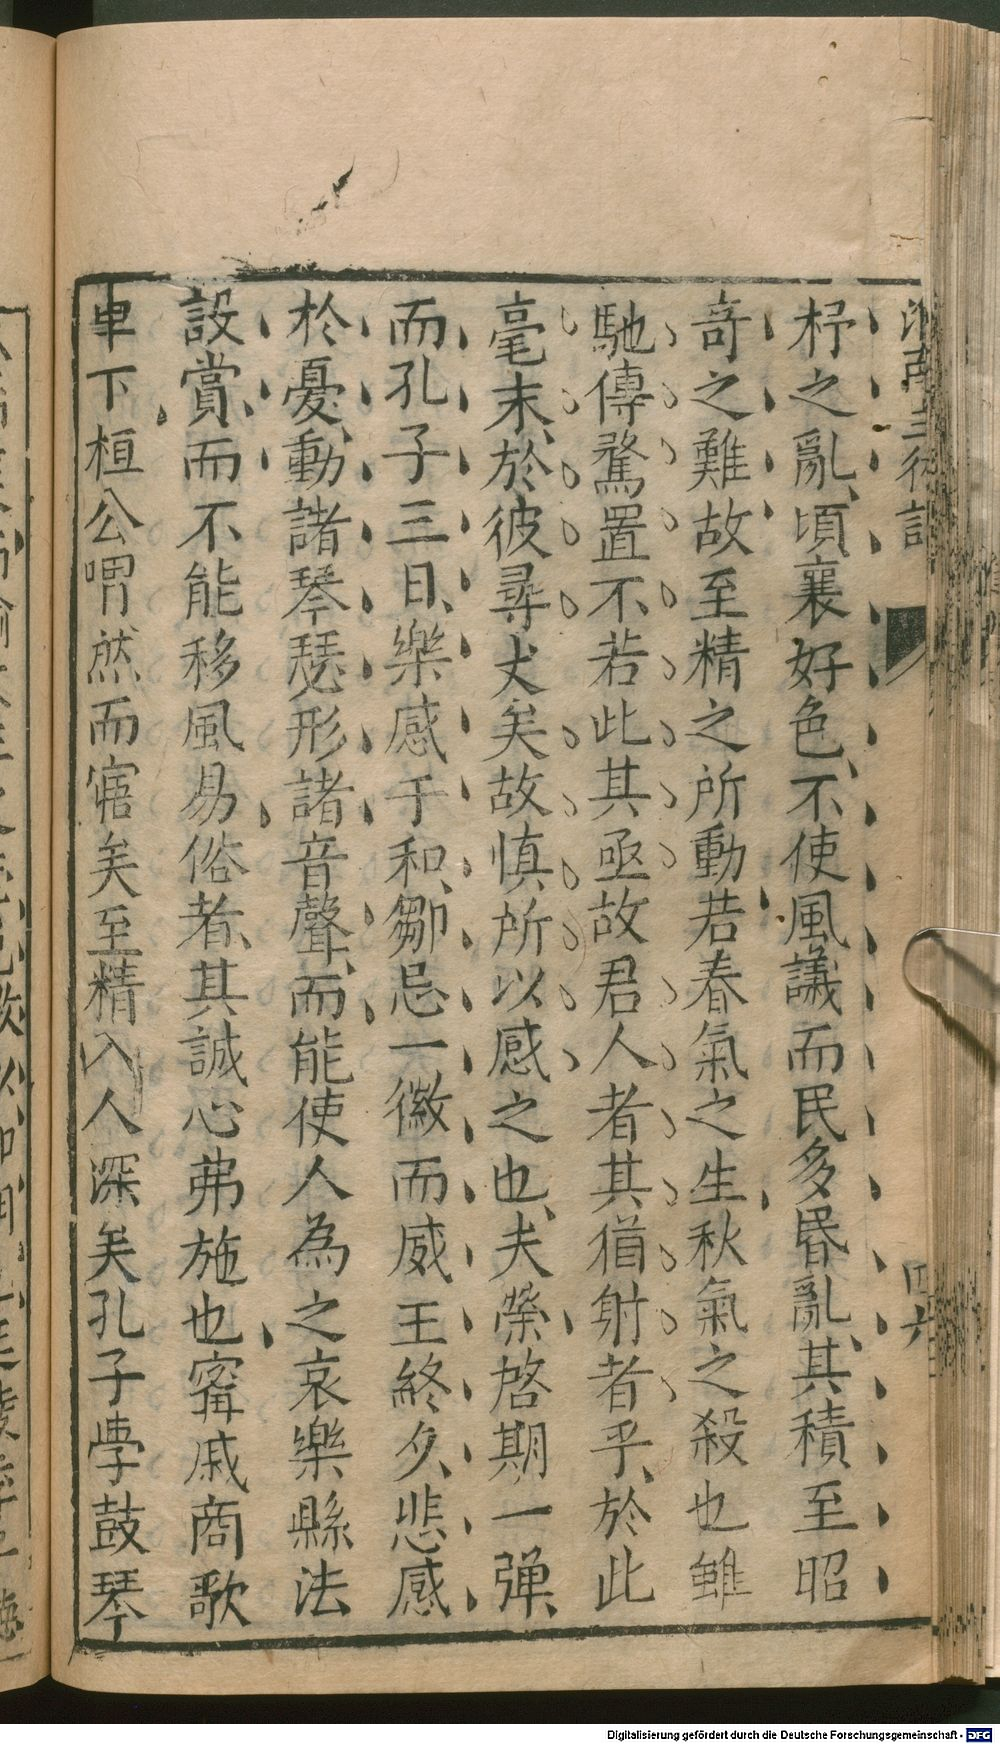 杼之亂、頃襄好色、不使風議而民多昬亂、其積至昭
奇之難故至精之所動若春氣之生秋氣之殺也雖
馳傳騖置不若此其亟故君人者其猶射者乎、於此
毫末、於彼尋丈矣故慎所以感之也、夫榮啓期一彈、
而孔子三日、樂感于和、鄒忌一徽而威王終夕、悲感
於憂、動諸琴瑟形諸音聲、而能使人為之哀樂縣法
設賞、而不能移風易俗者、其誠心弗施也甯戚商歌
車下桓公喟然而寤矣至精入人深矣孔子學鼓琴
四六
Digitalisierung gefördert durch die Deutsche Forschungsgemeinschaft - DFG